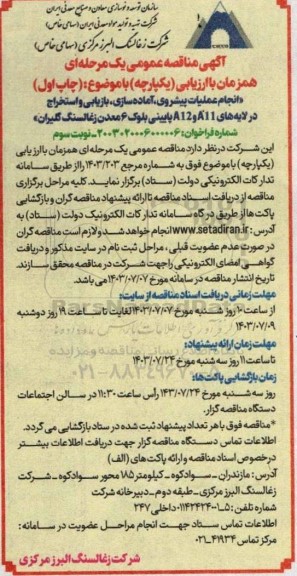 سازمان توسعه و نوسازی معادن و صنایع معدنی ایران
شرکت تهیه و تولید مواد معدنی ایران (سهامی خاص)
شرکت زغالسنگ البرز مرکزی (سهامی خاص)
آگهی مناقصه عمومی یک مرحله‌ای
همزمان با ارزیابی (یکپارچه) با موضوع: (چاپ اول)
«انجام عملیات پیشروی، آماده‌سازی، بازیابی و استخراج
در لایه‌های A11 و A12 پایینی بلوک ۶ معدن زغالسنگ گلیران»
شماره فراخوان: ۲۰۰۳۰۲۰۰۰۶۰۰۰۰۰۶ - نوبت سوم
این شرکت در نظر دارد مناقصه عمومی یک مرحله ای همزمان با ارزیابی
(یکپارچه) با موضوع فوق به شماره مرجع ۱۴۰۳/۲۰۳ را از طریق سامانه
تدارکات الکترونیکی دولت (ستاد) برگزار نماید. کلیه مراحل برگزاری
مناقصه از دریافت اسناد مناقصه تا ارائه پیشنهاد مناقصه گران و بازگشایی
پاکت‌ها از طریق درگاه سامانه تدارکات الکترونیک دولت (ستاد) به
آدرس: www.setadiran.ir انجام خواهد شد و لازم است مناقصه گران
در صورت عدم عضویت قبلی، مراحل ثبت نام در سایت مذکور و دریافت
گواهی امضای الکترونیکی را جهت شرکت در مناقصه محقق سازند.
تاریخ انتشار مناقصه در سامانه مورخ ۱۴۰۳/۰۷/۰۷ می باشد.
مهلت زمانی دریافت اسناد مناقصه از سایت:
از ساعت ۱۰ روز شنبه مورخ ۱۴۰۳/۰۷/۰۷ لغایت تا ساعت ۱۹ روز دوشنبه
۱۴۰۳/۰۷/۰۹
مهلت زمان ارائه پیشنهاد:
تا ساعت ۱۱ روز سه شنبه مورخ ۱۴۰۳/۰۷/۲۴
زمان بازگشایی پاکت‌ها:
روز سه شنبه مورخ ۱۴۳/۰۷/۲۴ راس ساعت ۱۱:۳۰ در سالن اجتماعات
دستگاه مناقصه گزار.
*مناقصه فوق با هر تعداد پیشنهاد ثبت شده در ستاد بازگشایی می گردد.
اطلاعات تماس دستگاه مناقصه گزار جهت دریافت اطلاعات بیشتر
درخصوص اسناد مناقصه و ارائه پاکت های (الف)
آدرس: مازندران - سوادکوه - کیلومتر ۱۸۵ محور سوادکوه - شرکت
زغالسنگ البرز مرکزی - طبقه دوم - دبیرخانه شرکت
شماره تلفن: ۵-۰۱۱۴۲۴۲۴۰۰۱ داخلی ۲۴۷
اطلاعات تماس ستاد جهت انجام مراحل عضویت در سامانه:
مرکز تماس ۴۱۹۳۴-۰۲۱
شرکت زغالسنگ البرز مرکزی